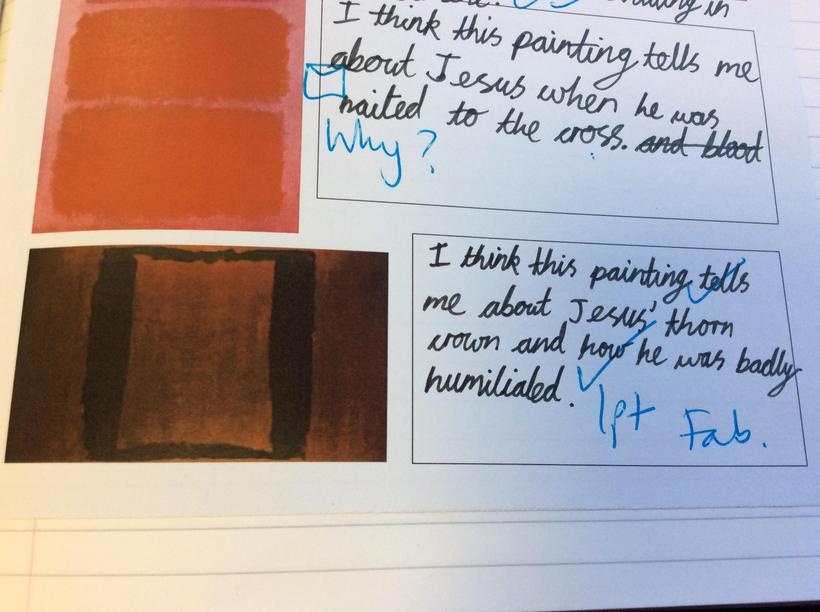 in
I think this painting tells me
about Jesus when he was
nailed to the cross. and blood
Why?
I think this painting tells
me about Jesus' thorn
crown and how he was badly
humiliated.
1pt Fab.